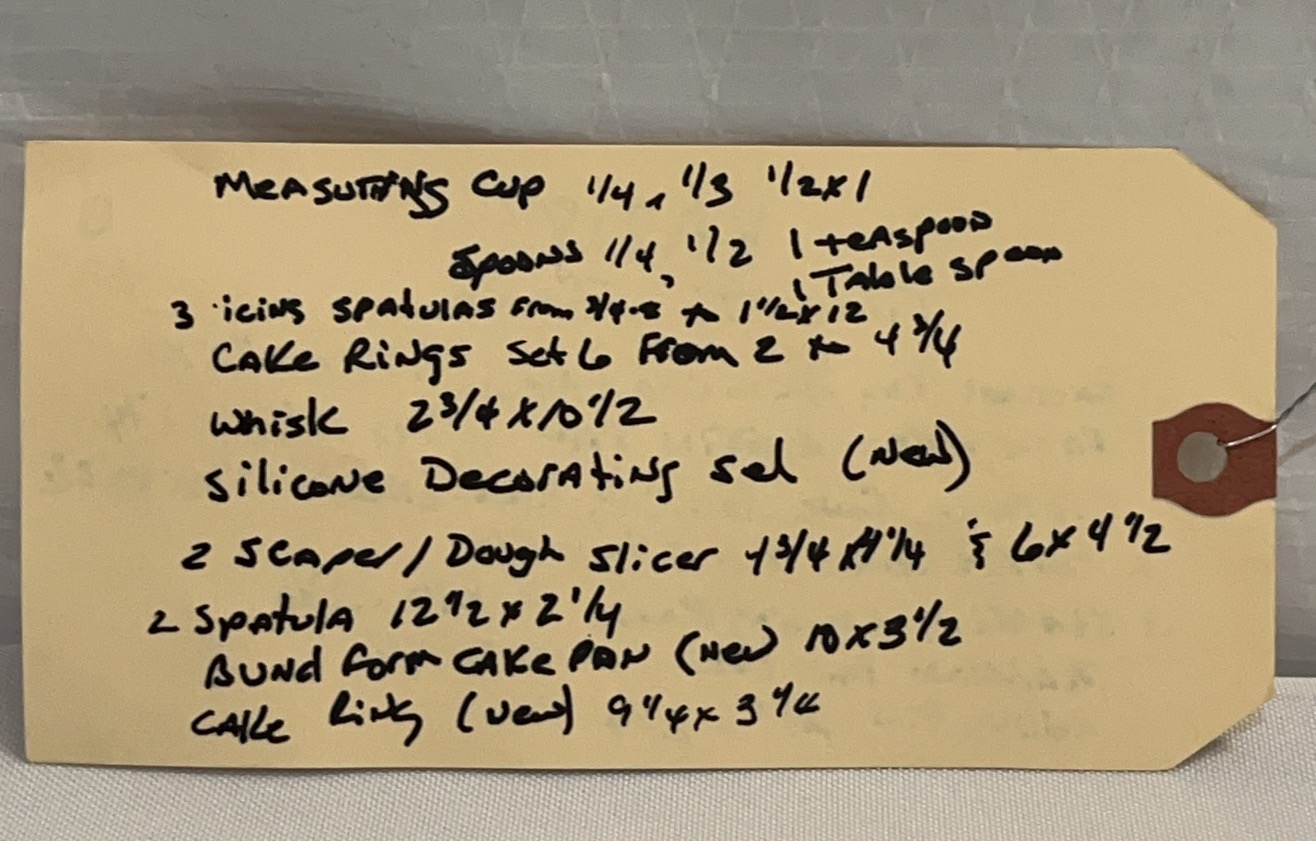 Measuring Cup 1/4, 1/3 1/2 x 1
Spoons 1/4, 1/2 1 teaspoon
1 Table spoon
3 icing spatulas from 3/4-8 to 1 1/2 x 12
Cake Rings Set 6 From 2 to 4 3/4
Whisk 2 3/4 x 10 1/2
Silicone Decorating Set (New)
2 Scaper/Dough Slicer 4 3/4 x 4 1/4 & 6 x 4 1/2
2 Spatula 12 1/2 x 2 1/4
Bund form Cake Pan (New) 10 x 3 1/2
Cake Ring (New) 9 1/4 x 3